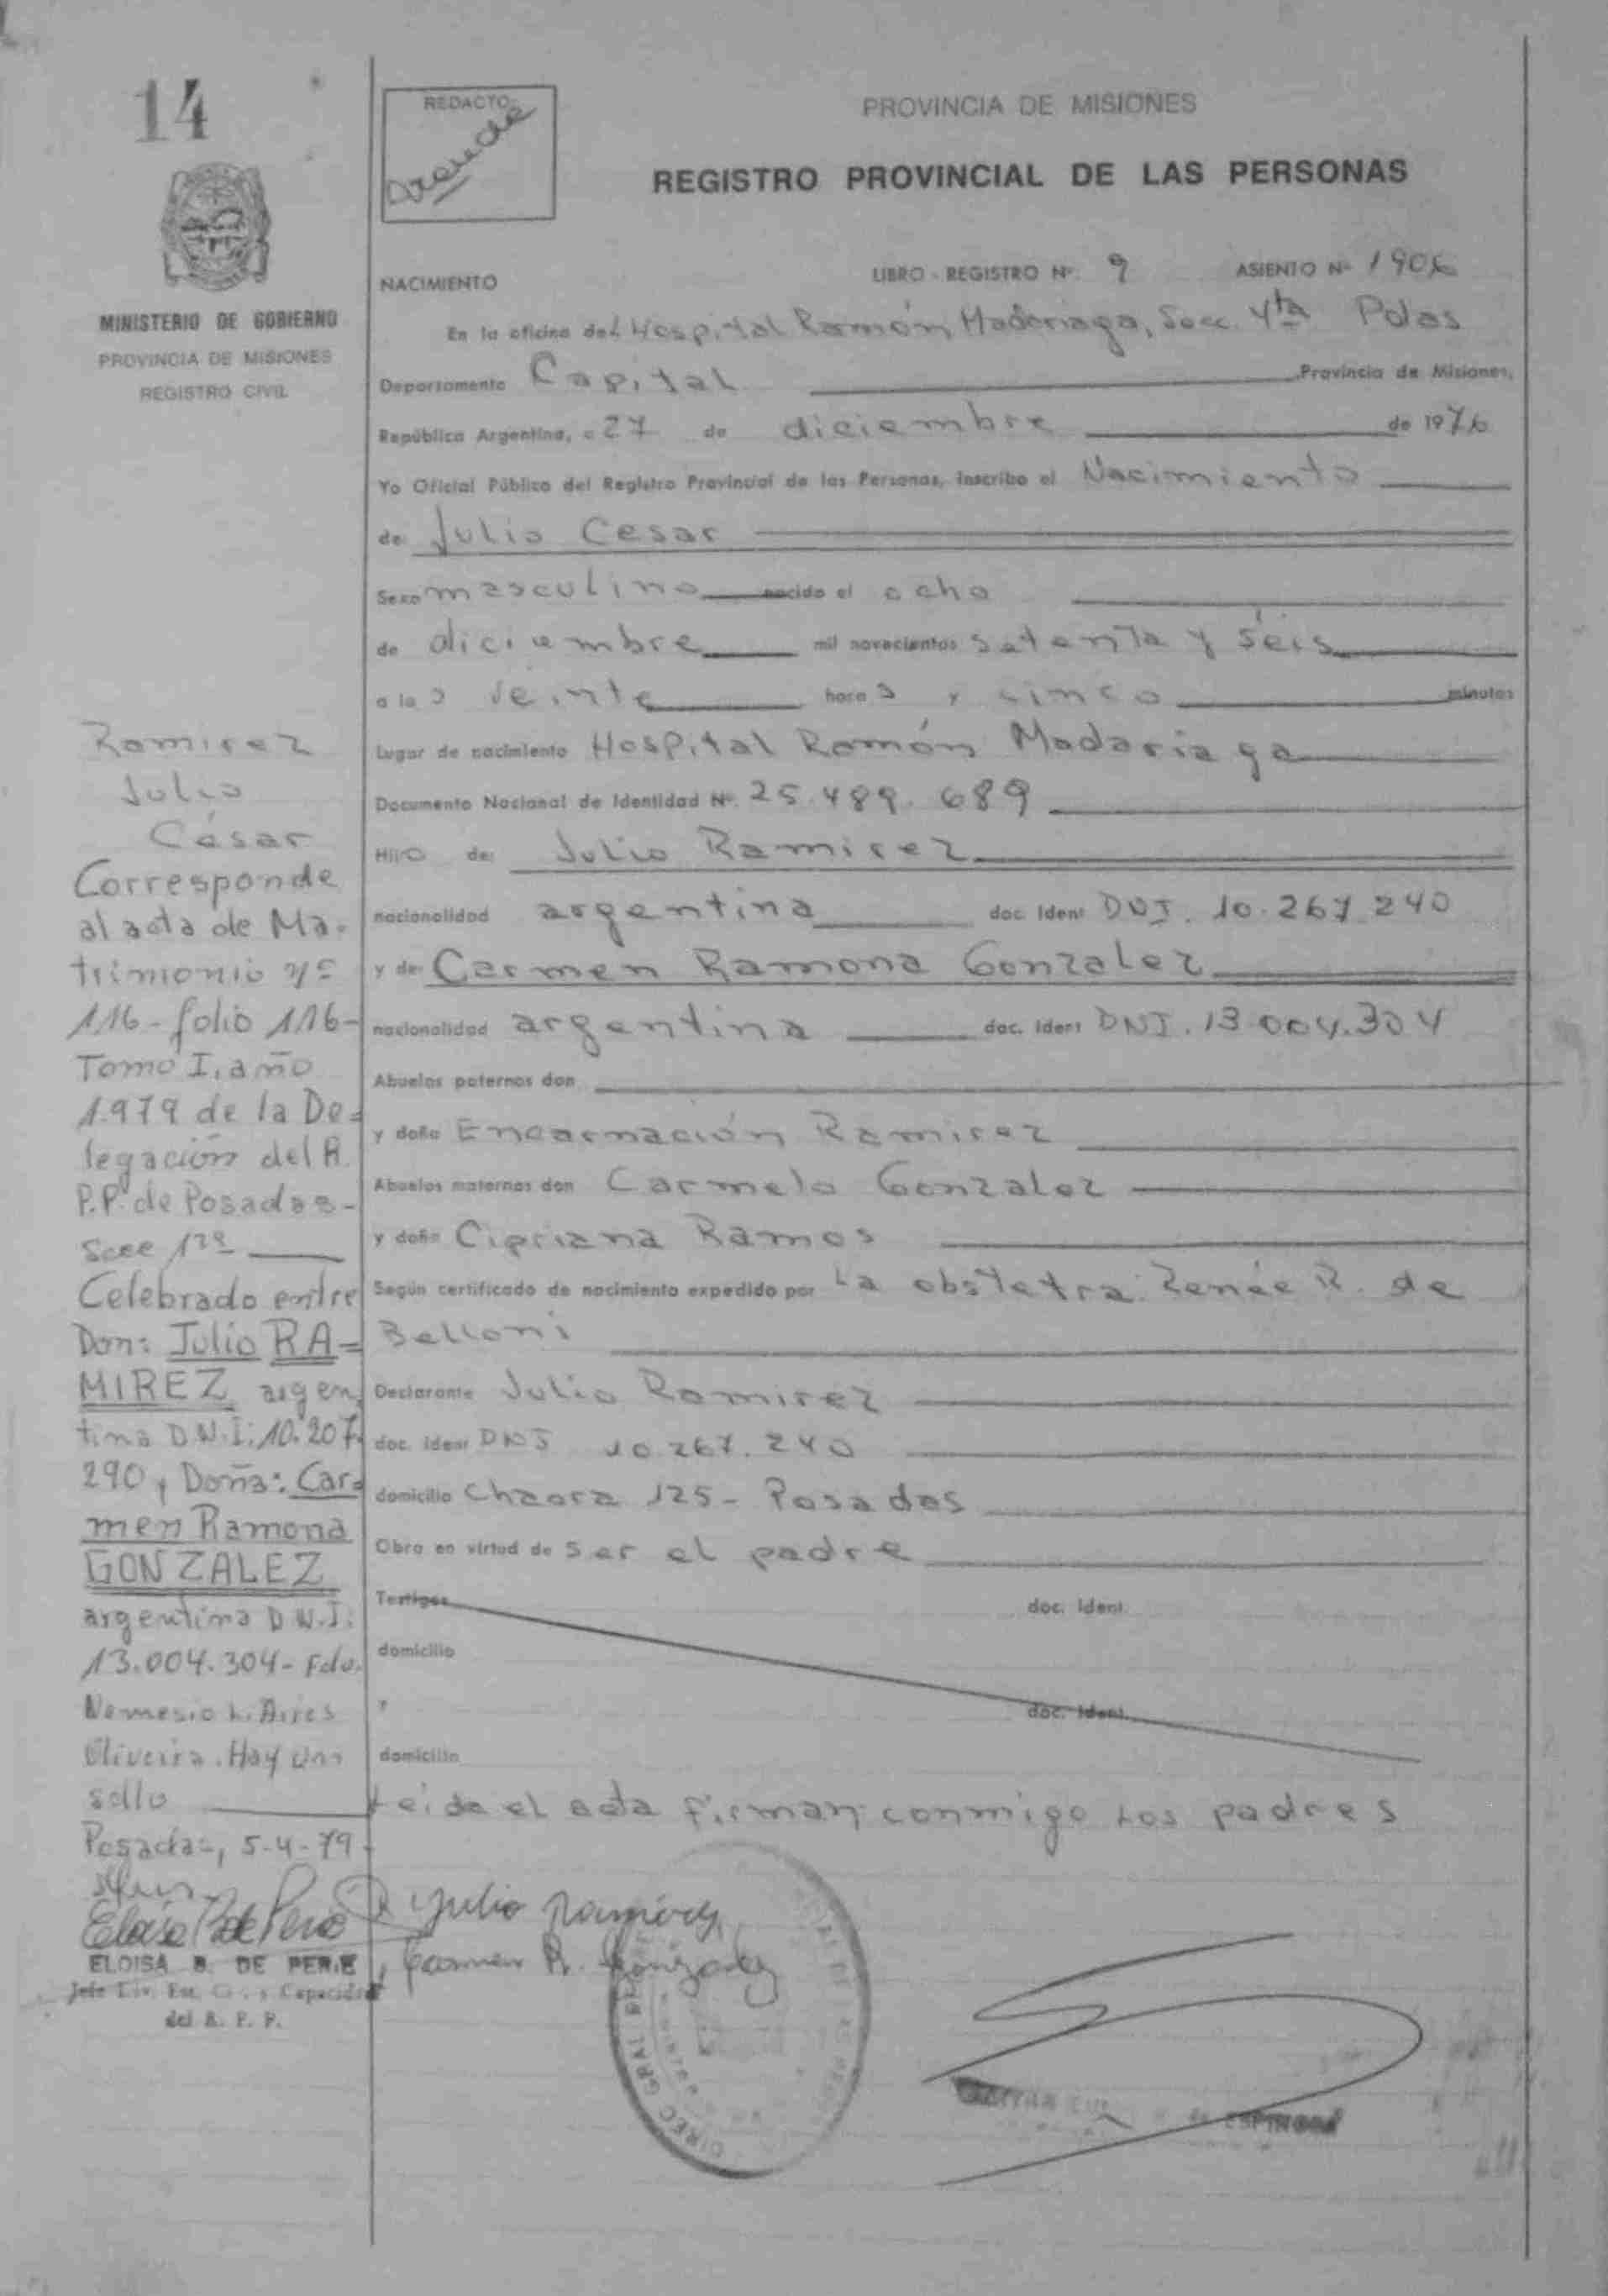 14
REDACTO
PROVINCIA DE MISIONES
REGISTRO PROVINCIAL DE LAS PERSONAS
MINISTERIO DE GOBIERNO
PROVINCIA DE MISIONES
REGISTRO CIVIL
NACIMIENTO LIBRO - REGISTRO Nº 9 ASIENTO Nº 1906
En la oficina del Hospital Ramón Madariaga, Secc. 4ta Pdas
Departamento Capital Provincia de Misiones,
República Argentina, a 27 de diciembre de 1976
Yo Oficial Público del Registro Provincial de las Personas, inscribo el Nacimiento
de Julio Cesar
Sexo masculino nacido el ocho
de diciembre mil novecientos setenta y seis
a las veinte horas y cinco minutos
Lugar de nacimiento Hospital Ramón Madariaga
Documento Nacional de Identidad Nº 25.489.689
Hijo de: Julio Ramirez
nacionalidad argentina doc. Ident DNI. 10.267.240
y de Carmen Ramona Gonzalez
nacionalidad argentina doc. Ident DNI. 13.004.304
Abuelos paternos don
y doña Encarnación Ramirez
Abuelos maternos don Carmelo Gonzalez
y doña Cipriana Ramos
Según certificado de nacimiento expedido por La obstetra: Renée R. de
Belloni
Declarante Julio Ramirez
doc. Ident DNI 10.267.240
domicilio Chacra 125 - Posadas
Obra en virtud de ser el padre
Testigos doc. Ident.
domicilio
y doc. Ident.
domicilio
Leida el acta firman conmigo los padres
Julio Ramírez
Carmen R. Gonzalez
DIREC. GRAL.
ESPINOSA
Ramirez
Julio
César
Corresponde
al acta de Ma-
trimonio nº
116 - folio 116 -
Tomo I, año
1.979 de la De=
legación del R.
P.P. de Posadas -
Secc 1ra
Celebrado entre
Don: Julio RA=
MIREZ argen
tina D.N.I: 10.207.
290, Doña: Car=
men Ramona
GONZALEZ
argentina D.N.I:
13.004.304 - Fdo.
Nemesio L. Aires
Oliveira. Hay un
sello
Posadas, 5-4-79
ELOISA B. DE PERIE
del R. P. P.